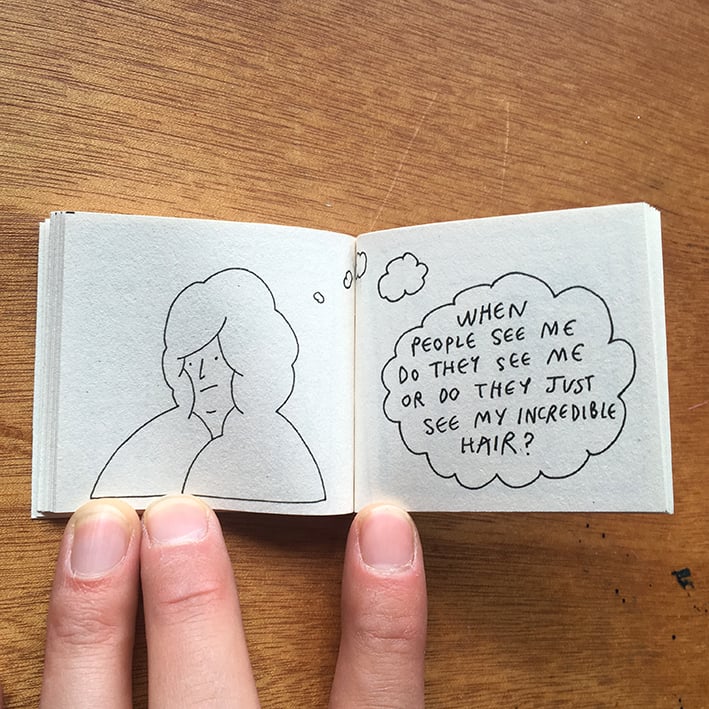 WHEN
PEOPLE SEE ME
DO THEY SEE ME
OR DO THEY JUST
SEE MY INCREDIBLE
HAIR?